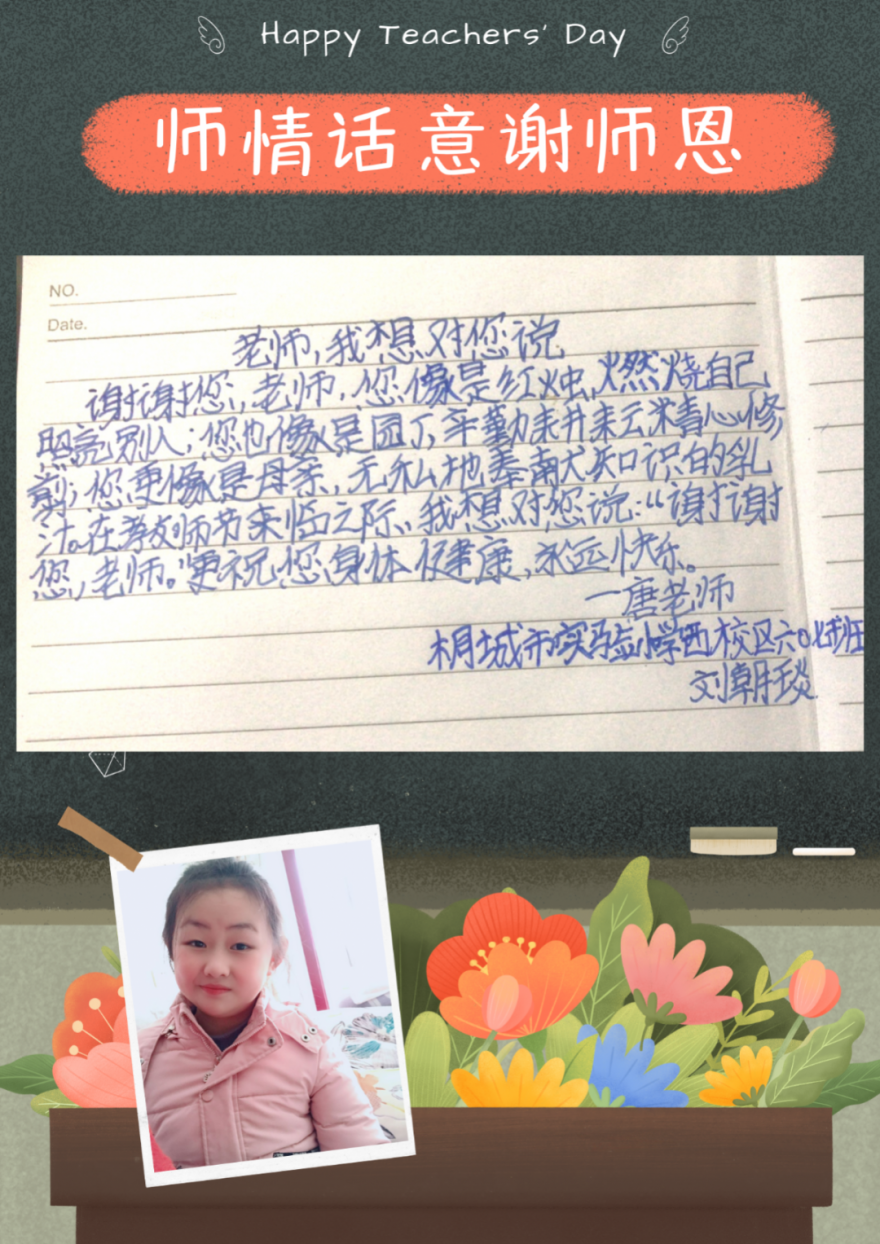 Happy Teachers' Day
师情话意谢师恩
NO.
Date.
老师,我想对您说
谢谢您,老师,您像是红烛,燃烧自己
照亮别人;您也像是园丁,辛勤来耕耘精心修
剪;您更像是母亲,无私地奉献知识的乳
汁。在教师节来临之际,我想对您说:“谢谢
您,老师。”更祝您身体健康,永远快乐。
—唐老师
桐城市实验小学西校区六
刘朝琰